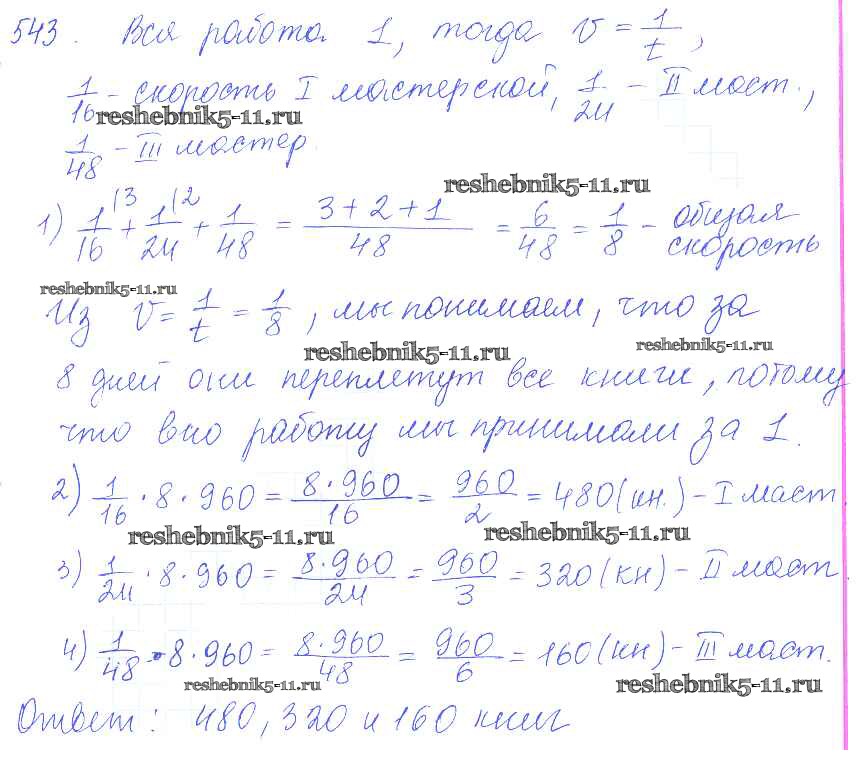 543. Вся работа 1, тогда v = 1/t,
1/16 - скорость I мастерской, 1/24 - II маст.,
reshebnik5-11.ru
1/48 - III мастер.
reshebnik5-11.ru
1) 1/16 (3 + 1/24 (2 + 1/48 = 3+2+1/48 = 6/48 = 1/8 - общая скорость
reshebnik5-11.ru
Из v = 1/t = 1/8, мы понимаем, что за
reshebnik5-11.ru
reshebnik5-11.ru
8 дней они переплетут все книги, потому
что вю работу мы принимали за 1.
2) 1/16 · 8 · 960 = 8·960/16 = 960/2 = 480 (кн.) - I маст.
reshebnik5-11.ru
reshebnik5-11.ru
3) 1/24 · 8 · 960 = 8·960/24 = 960/3 = 320 (кн) - II маст
4) 1/48 · 8 · 960 = 8·960/48 = 960/6 = 160 (кн) - III маст.
reshebnik5-11.ru
reshebnik5-11.ru
Ответ: 480, 320 и 160 книг